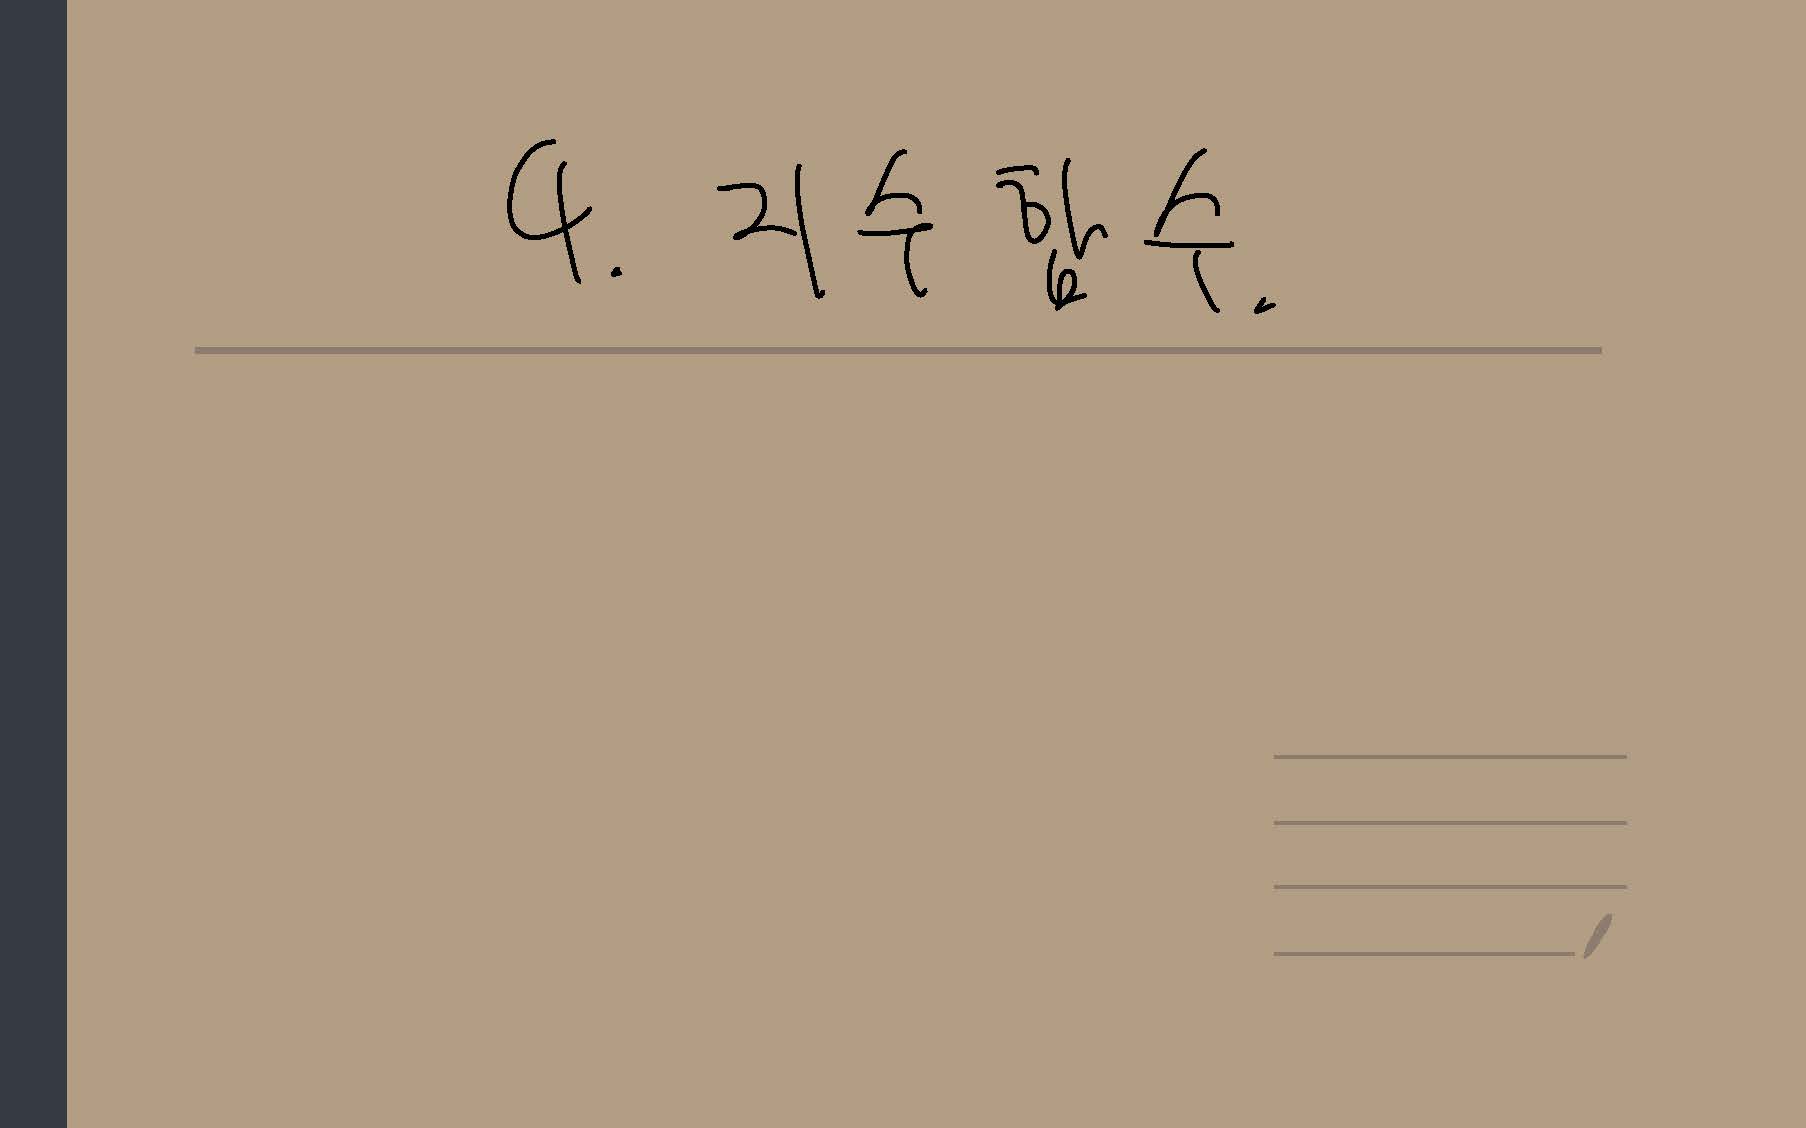 4. 지수함수.